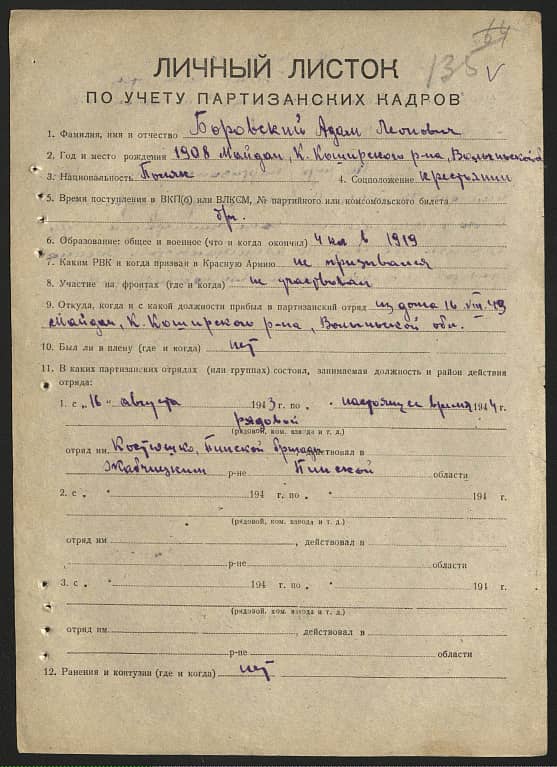 64
135 v
ЛИЧНЫЙ ЛИСТОК
ПО УЧЕТУ ПАРТИЗАНСКИХ КАДРОВ
1. Фамилия, имя и отчество Боровский Адам Леопович
2. Год и место рождения 1908 Майдан, К. Коширского р-на, Волыньской о
3. Национальность Поляк 4. Соцположение крестьянин
5. Время поступления в ВКП(б) или ВЛКСМ, № партийного или комсомольского билета
б/п.
6. Образование: общее и военное (что и когда окончил) 4 кл в 1919
7. Каким РВК и когда призван в Красную Армию не призывался
8. Участие на фронтах (где и когда) не участвовал
9. Откуда, когда и с какой должности прибыл в партизанский отряд из дома 16.VIII.43
Майдан, К. Коширского р-на, Волыньской обл.
10. Был ли в плену (где и когда) нет
11. В каких партизанских отрядах (или группах) состоял, занимаемая должность и район действия
отряда:
1. с „16" августа 1943 г. по „ настоящее время 1944 г.
рядовой
(рядовой, ком. взвода и т. д.)
отряд им. Костюшко, Пинской бригады действовал в
Жабчицким р-не Пинской области
2. с „ " 194 г. по „ " 194 г.
(рядовой, ком. взвода и т. д.)
отряд им , действовал в
р-не области
3. с „ " 194 г. по „ " 194 г.
(рядовой, ком. взвода и т. д.)
отряд им , действовал в
р-не области
12. Ранения и контузии (где и когда) нет